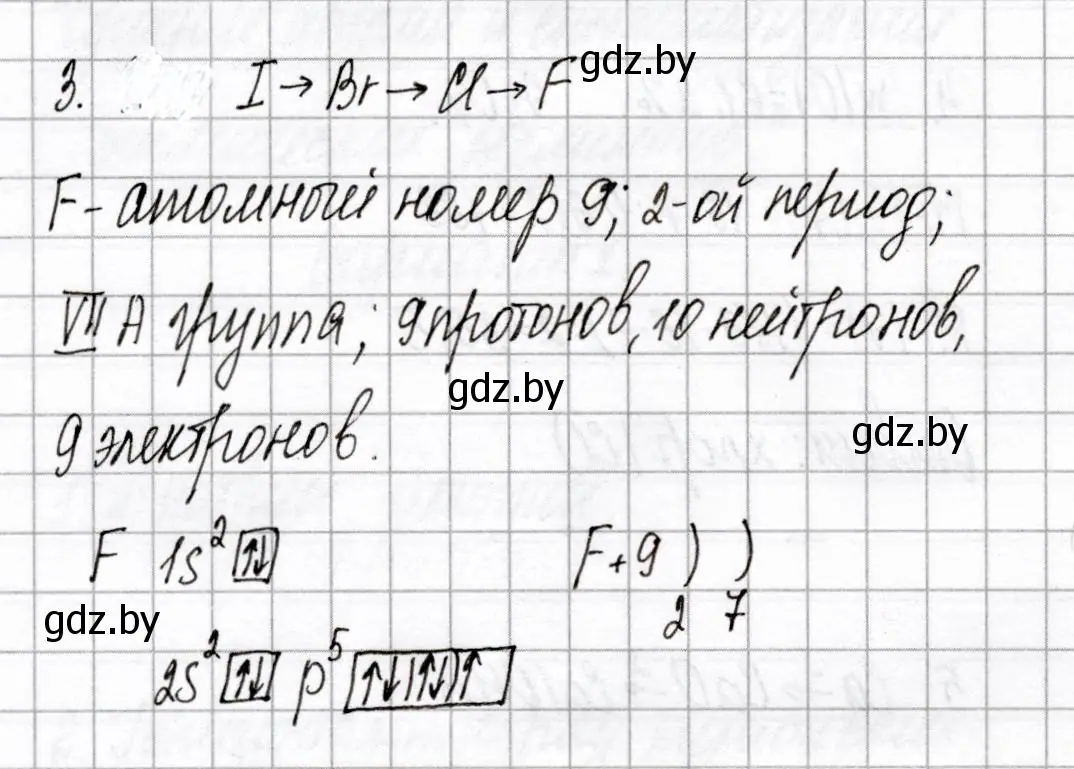 3. I → Br → Cl → F gdz.by
F - атомный номер 9; 2-ой период;
VII A группа; 9 протонов, 10 нейтронов,
gdz.by
9 электронов. gdz.by
F 1s² ↑↓ F +9 ) )
gdz.by 2 7
2s² ↑↓ p⁵ ↑↓ ↑↓ ↑